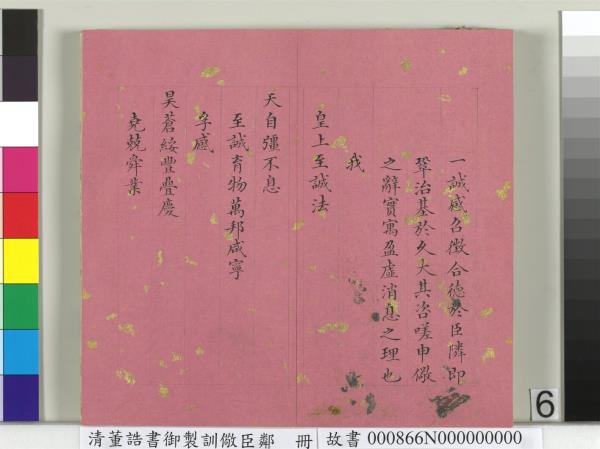 一誠感召徵合德於臣隣即
鞏治基於久大其咨嗟申儆
之辭實寓盈虛消息之理也
我
皇上至誠法
天自彊不息
至誠育物萬邦咸寧
孚感
昊蒼綏豐疊慶
堯兢舜業
6
清董誥書御製訓儆臣鄰 冊
故書 000866N000000000